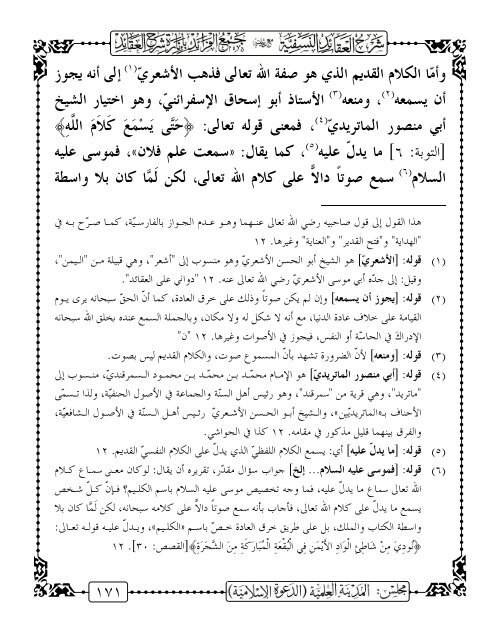 شرح العقائد النسفية مع حاشيته جمع الفرائد بإنارة شرح العقائد
وأمّا الكلام القديم الذي هو صفة الله تعالى فذهب الأشعريّ(١) إلى أنه يجوز
أن يسمعه(٢)، ومنعه(٣) الأستاذ أبو إسحاق الإسفرائنيّ، وهو اختيار الشيخ
أبي منصور الماتريديّ(٤)، فمعنى قوله تعالى: ﴿حَتَّى يَسْمَعَ كَلَامَ اللّٰهِ﴾
[التوبة: ٦] ما يدلّ عليه(٥)، كما يقال: «سمعت علم فلان»، فموسى عليه
السلام(٦) سمع صوتاً دالاًّ على كلام الله تعالى، لكن لَمَّا كان بلا واسطة
هذا القول إلى قول صاحبيه رضي الله تعالى عنهما وهو عدم الجواز بالفارسيّة، كما صرّح به في
"الهداية" و"فتح القدير" و"العناية" وغيرها. ١٢
(١) قوله: [الأشعريّ] هو الشيخ أبو الحسن الأشعريّ وهو منسوب إلى "أشعر"، وهي قبيلة من "اليمن"،
وقيل: إلى جدّه أبي موسى الأشعريّ رضي الله تعالى عنه. ١٢ "دواني على العقائد".
(٢) قوله: [يجوز أن يسمعه] وإن لم يكن صوتاً وذلك على خرق العادة، كما أنّ الحقّ سبحانه يرى يوم
القيامة على خلاف عادة الدنيا، مع أنه لا شكل له ولا مكان، وبالجملة السمع عنده بخلق الله سبحانه
الإدراكَ في الحاسّة أو النفس، فيجوز في الأصوات وغيرها. ١٢ "ن"
(٣) قوله: [ومنعه] لأنّ الضرورة تشهد بأنّ المسموع صوت، والكلام القديم ليس بصوت.
(٤) قوله: [أبي منصور الماتريديّ] هو الإمام محمّد بن محمّد بن محمود السمرقنديّ، منسوب إلى
"ماتريد"، وهي قرية من "سمرقند"، وهو رئيس أهل السنّة والجماعة في الأصول الحنفيّة، ولذا تسمّى
الأحناف بـ«الماتريديّين»، والشيخ أبو الحسن الأشعريّ رئيس أهل السنّة في الأصول الشافعيّة،
والفرق بينهما قليل مذكور في مقامه. ١٢ كذا في الحواشي.
(٥) قوله: [ما يدلّ عليه] أي: يسمع الكلام اللفظيّ الذي يدلّ على الكلام النفسيّ القديم. ١٢
(٦) قوله: [فموسى عليه السلام... إلخ] جواب سؤال مقدّر، تقريره أن يقال: لو كان معنى سماع كلام
الله تعالى سماع ما يدلّ عليه، فما وجه تخصيص موسى عليه السلام باسم الكليم؟ فإنّ كلّ شخص
يسمع ما يدلّ على كلام الله تعالى، فأجاب بأنه سمع صوتاً دالاًّ على كلامه سبحانه، لكن لَمَّا كان بلا
واسطة الكتاب والملك، بل على طريق خرق العادة خصّ باسم «الكليم»، ويدلّ عليه قوله تعالى:
﴿نُودِيَ مِنْ شَاطِئِ الْوَادِ الْأَيْمَنِ فِي الْبُقْعَةِ الْمُبَارَكَةِ مِنَ الشَّجَرَةِ﴾[القصص: ٣٠]. ١٢
مجلس: المدينة العلمية (الدعوة الإسلامية)
١٧١